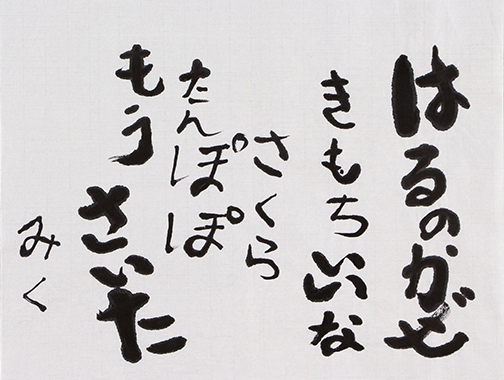 はるのかぜ
きもちいいな
さくら
たんぽぽ
もうさいた
みく